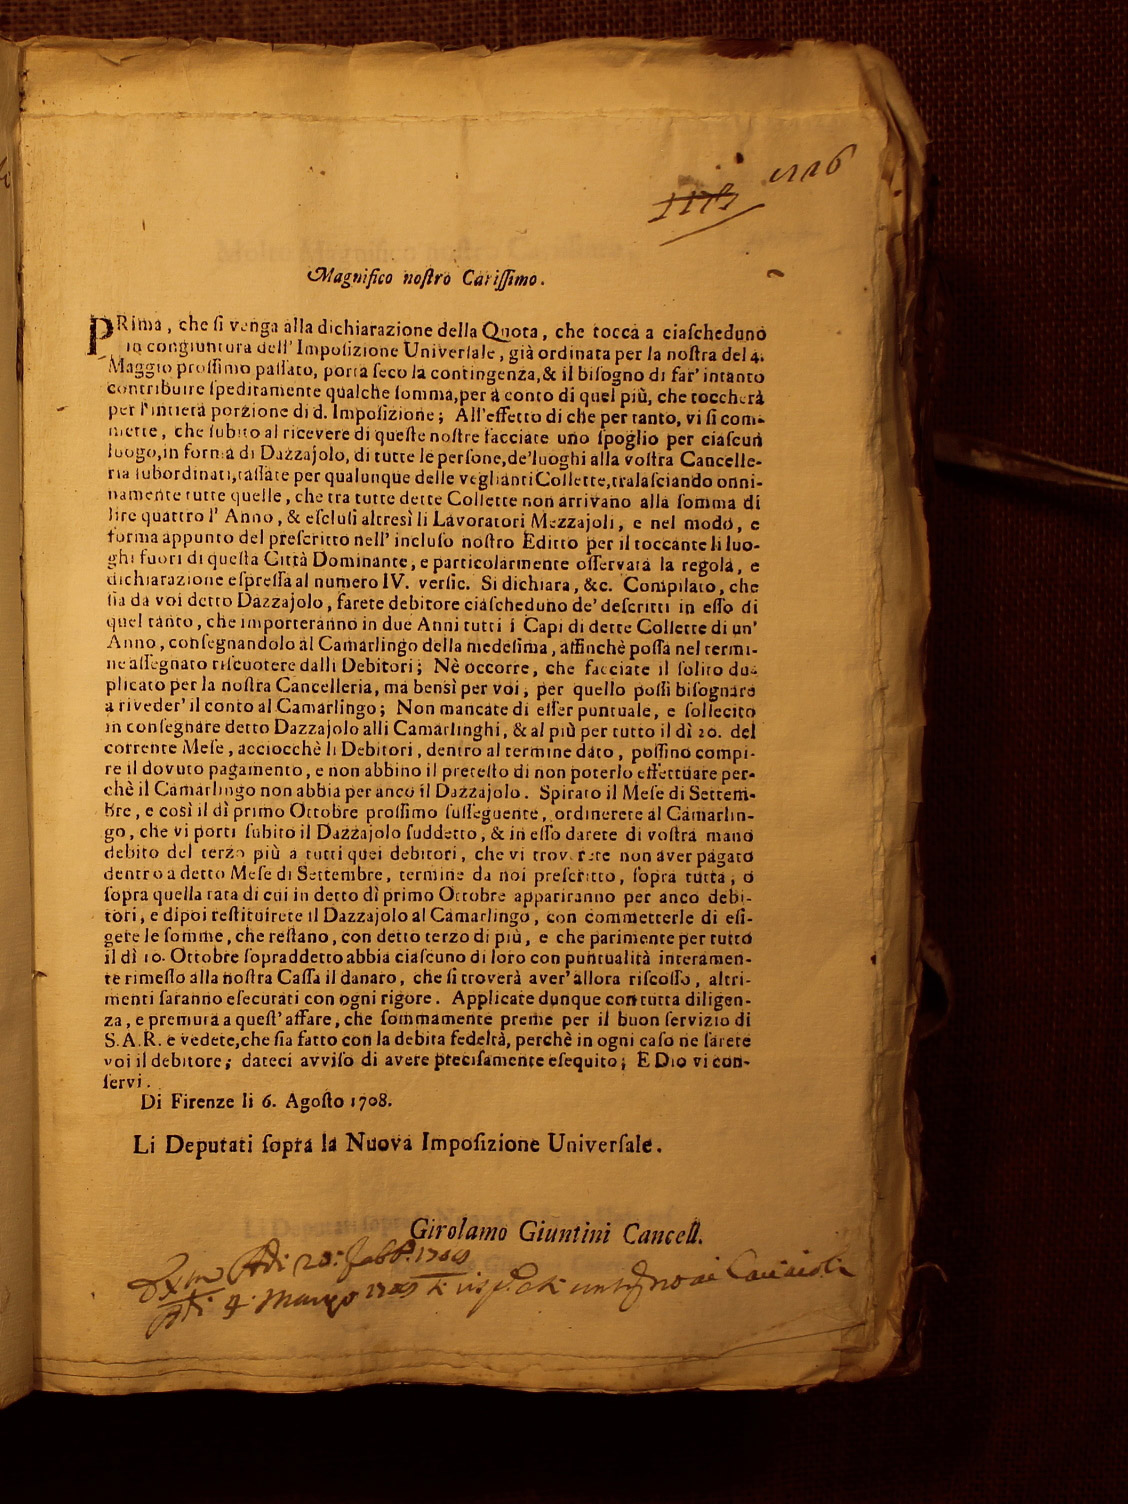 1126
Magnifico noſtro Cariſſimo.
PRima, che ſi venga alla dichiarazione della Quota, che tocca a ciaſcheduno
in congiuntura dell' Impoſizione Univerſale, già ordinata per la noſtra del 4.
Maggio proſſimo paſſato, porta ſeco la contingenza, & il biſogno di far' intanto
contribuire ſpeditamente qualche ſomma, per à conto di quel più, che toccherà
per l'intierà porzione di d. Impoſizione; All'effetto di che per tanto, vi ſi com-
mette, che ſubito al ricevere di queſte noſtre facciate uno ſpoglio per ciaſcun
luogo, in forma di Dazzajolo, di tutte le perſone, de' luoghi alla voſtra Cancelle-
ria ſubordinati, taſſate per qualunque delle veglianti Collette, tralaſciando onni-
namente tutte quelle, che tra tutte dette Collette non arrivano alla ſomma di
lire quattro l' Anno, & eſcluſi altresì li Lavoratori Mezzajoli, e nel modo, e
forma appunto del preſcritto nell' incluſo noſtro Editto per il toccante li luo-
ghi fuori di queſta Città Dominante, e particolarmente oſſervata la regola, e
dichiarazione eſpreſſa al numero IV. verſic. Si dichiara, &c. Compilato, che
ſia da voi detto Dazzajolo, farete debitore ciaſcheduno de' deſcritti in eſſo di
quel tanto, che importeranno in due Anni tutti i Capi di dette Collette di un'
Anno, conſegnandolo al Camarlingo della medeſima, affinchè poſſa nel termi-
ne aſſegnato riſcuotere dalli Debitori; Nè occorre, che facciate il ſolito du-
plicato per la noſtra Cancelleria, ma bensì per voi, per quello poſſi biſognare
a riveder' il conto al Camarlingo; Non mancate di eſſer puntuale, e ſollecito
in conſegnare detto Dazzajolo alli Camarlinghi, & al più per tutto il dì 20. del
corrente Meſe, acciocchè li Debitori, dentro al termine dato, poſſino compi-
re il dovuto pagamento, e non abbino il preteſto di non poterlo effettuare per-
chè il Camarlingo non abbia per anco il Dazzajolo. Spirato il Meſe di Settem-
bre, e così il dì primo Ottobre proſſimo ſuſſeguente, ordinerete al Camarlin-
go, che vi porti ſubito il Dazzajolo ſuddetto, & in eſſo darete di voſtra mano
debito del terzo più a tutti quei debitori, che vi troverete non aver pagato
dentro a detto Meſe di Settembre, termine da noi preſcritto, ſopra tutta, o
ſopra quella rata di cui in detto dì primo Ottobre appariranno per anco debi-
tori, e dipoi reſtituirete il Dazzajolo al Camarlingo, con commetterle di eſi-
gere le ſomme, che reſtano, con detto terzo di più, e che parimente per tutto
il dì 10. Ottobre ſopraddetto abbia ciaſcuno di loro con puntualità interamen-
te rimeſſo alla noſtra Caſſa il danaro, che ſi troverà aver' allora riſcoſſo, altri-
menti ſaranno eſecutati con ogni rigore. Applicate dunque con tutta diligen-
za, e premura a queſt' affare, che ſommamente preme per il buon ſervizio di
S.A.R. e vedete, che ſia fatto con la debita fedeltà, perchè in ogni caſo ne ſarete
voi il debitore; dateci avviſo di avere preciſamente eſequito; E Dio vi con-
ſervi.
Di Firenze li 6. Agoſto 1708.
Li Deputati ſopra la Nuova Impoſizione Univerſale.
Girolamo Giuntini Cancell.
Adi 20: Febb.
4. Marzo